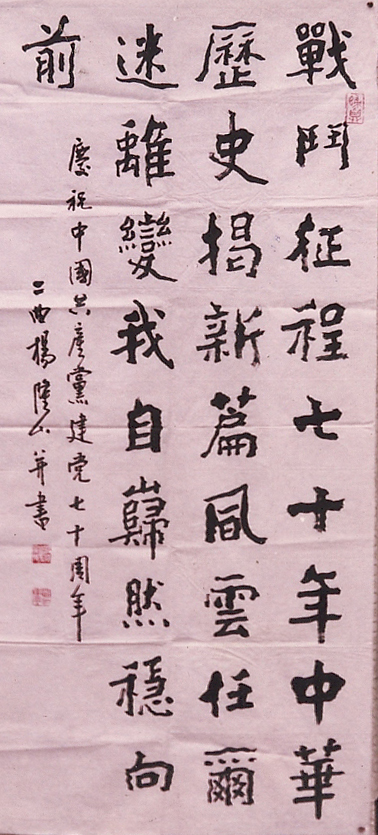 戰鬥征程七十年中華
歷史揭新篇風雲任爾
迷離變我自巋然穩向
前
慶祝中國共產黨建党七十周年
二曲楊陸山并書